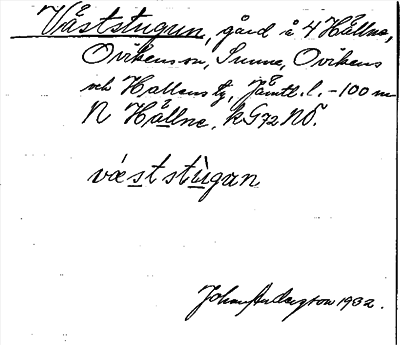 Våststugun, gård å 4 Hållne,
Ovikenson, Sunne, Ovikens
och Hallens tg, Jämtl. l. -100 m
N Hållne. kG72NÖ.
væststùgun
Johan Anderzson 1932.